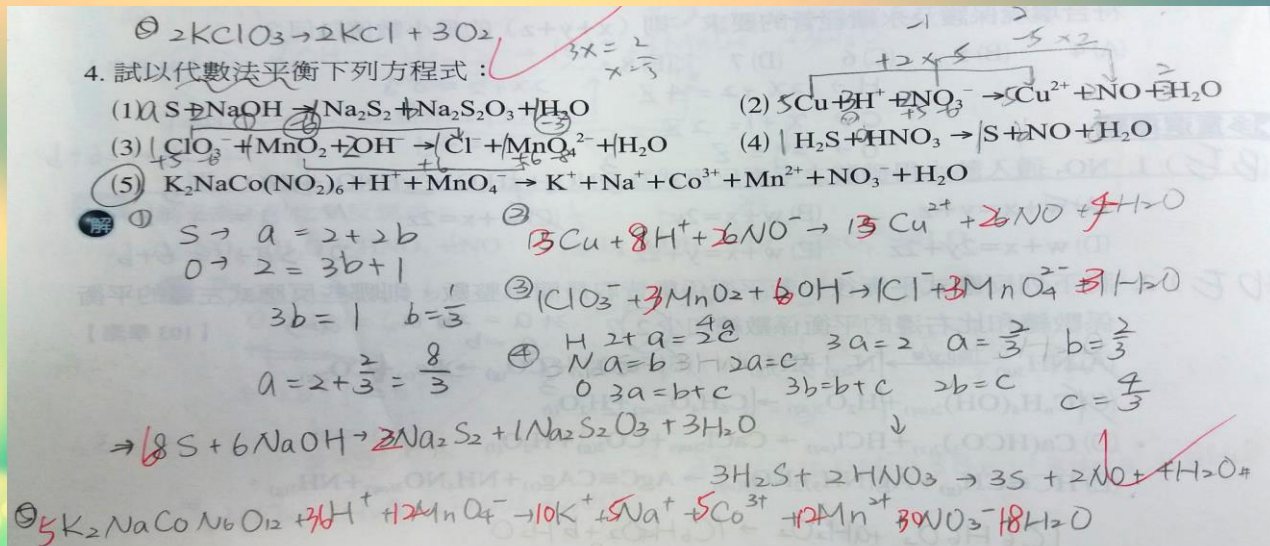 ⑤ 2KClO3→2KCl + 3O2
3x=2 x=2/3
4. 試以代數法平衡下列方程式：
(1) a S+2NaOH→1Na₂S₂+bNa₂S₂O₃+1H₂O
(2) 5Cu+H⁺+2NO₃⁻→5Cu²⁺+NO+H₂O
+2×5
-5×2
(3) 1ClO₃⁻+MnO₂+2OH⁻→1Cl⁻+1MnO₄²⁻+1H₂O
(4) 1H₂S+aHNO₃→1S+bNO+H₂O
(5) K₂NaCo(NO₂)₆+H⁺+MnO₄⁻→K⁺+Na⁺+Co³⁺+Mn²⁺+NO₃⁻+H₂O
解 ①
S→ a = 2+2b
O→ 2 = 3b+1
3b=1 b=1/3
a=2+2/3=8/3
→ 8S+6NaOH→3Na2S2+1Na2S2O3+3H2O
② 3Cu+8H⁺+2NO⁻→3Cu²⁺+2NO+4H2O
③ 1ClO3⁻+3MnO2+6OH⁻→1Cl⁻+3MnO4²⁻+3H2O
④ H 2+a=2c
N a=b
2a=c
O 3a=b+c 3b=b+c 2b=c
3a=2 a=2/3 b=2/3
c=4/3
↓
3H2S+2HNO3→3S+2NO+4H2O#
⑤ 5K2NaCoN6O12+36H⁺+12MnO4⁻→10K⁺+5Na⁺+5Co³⁺+12Mn²⁺+30NO3⁻+18H2O